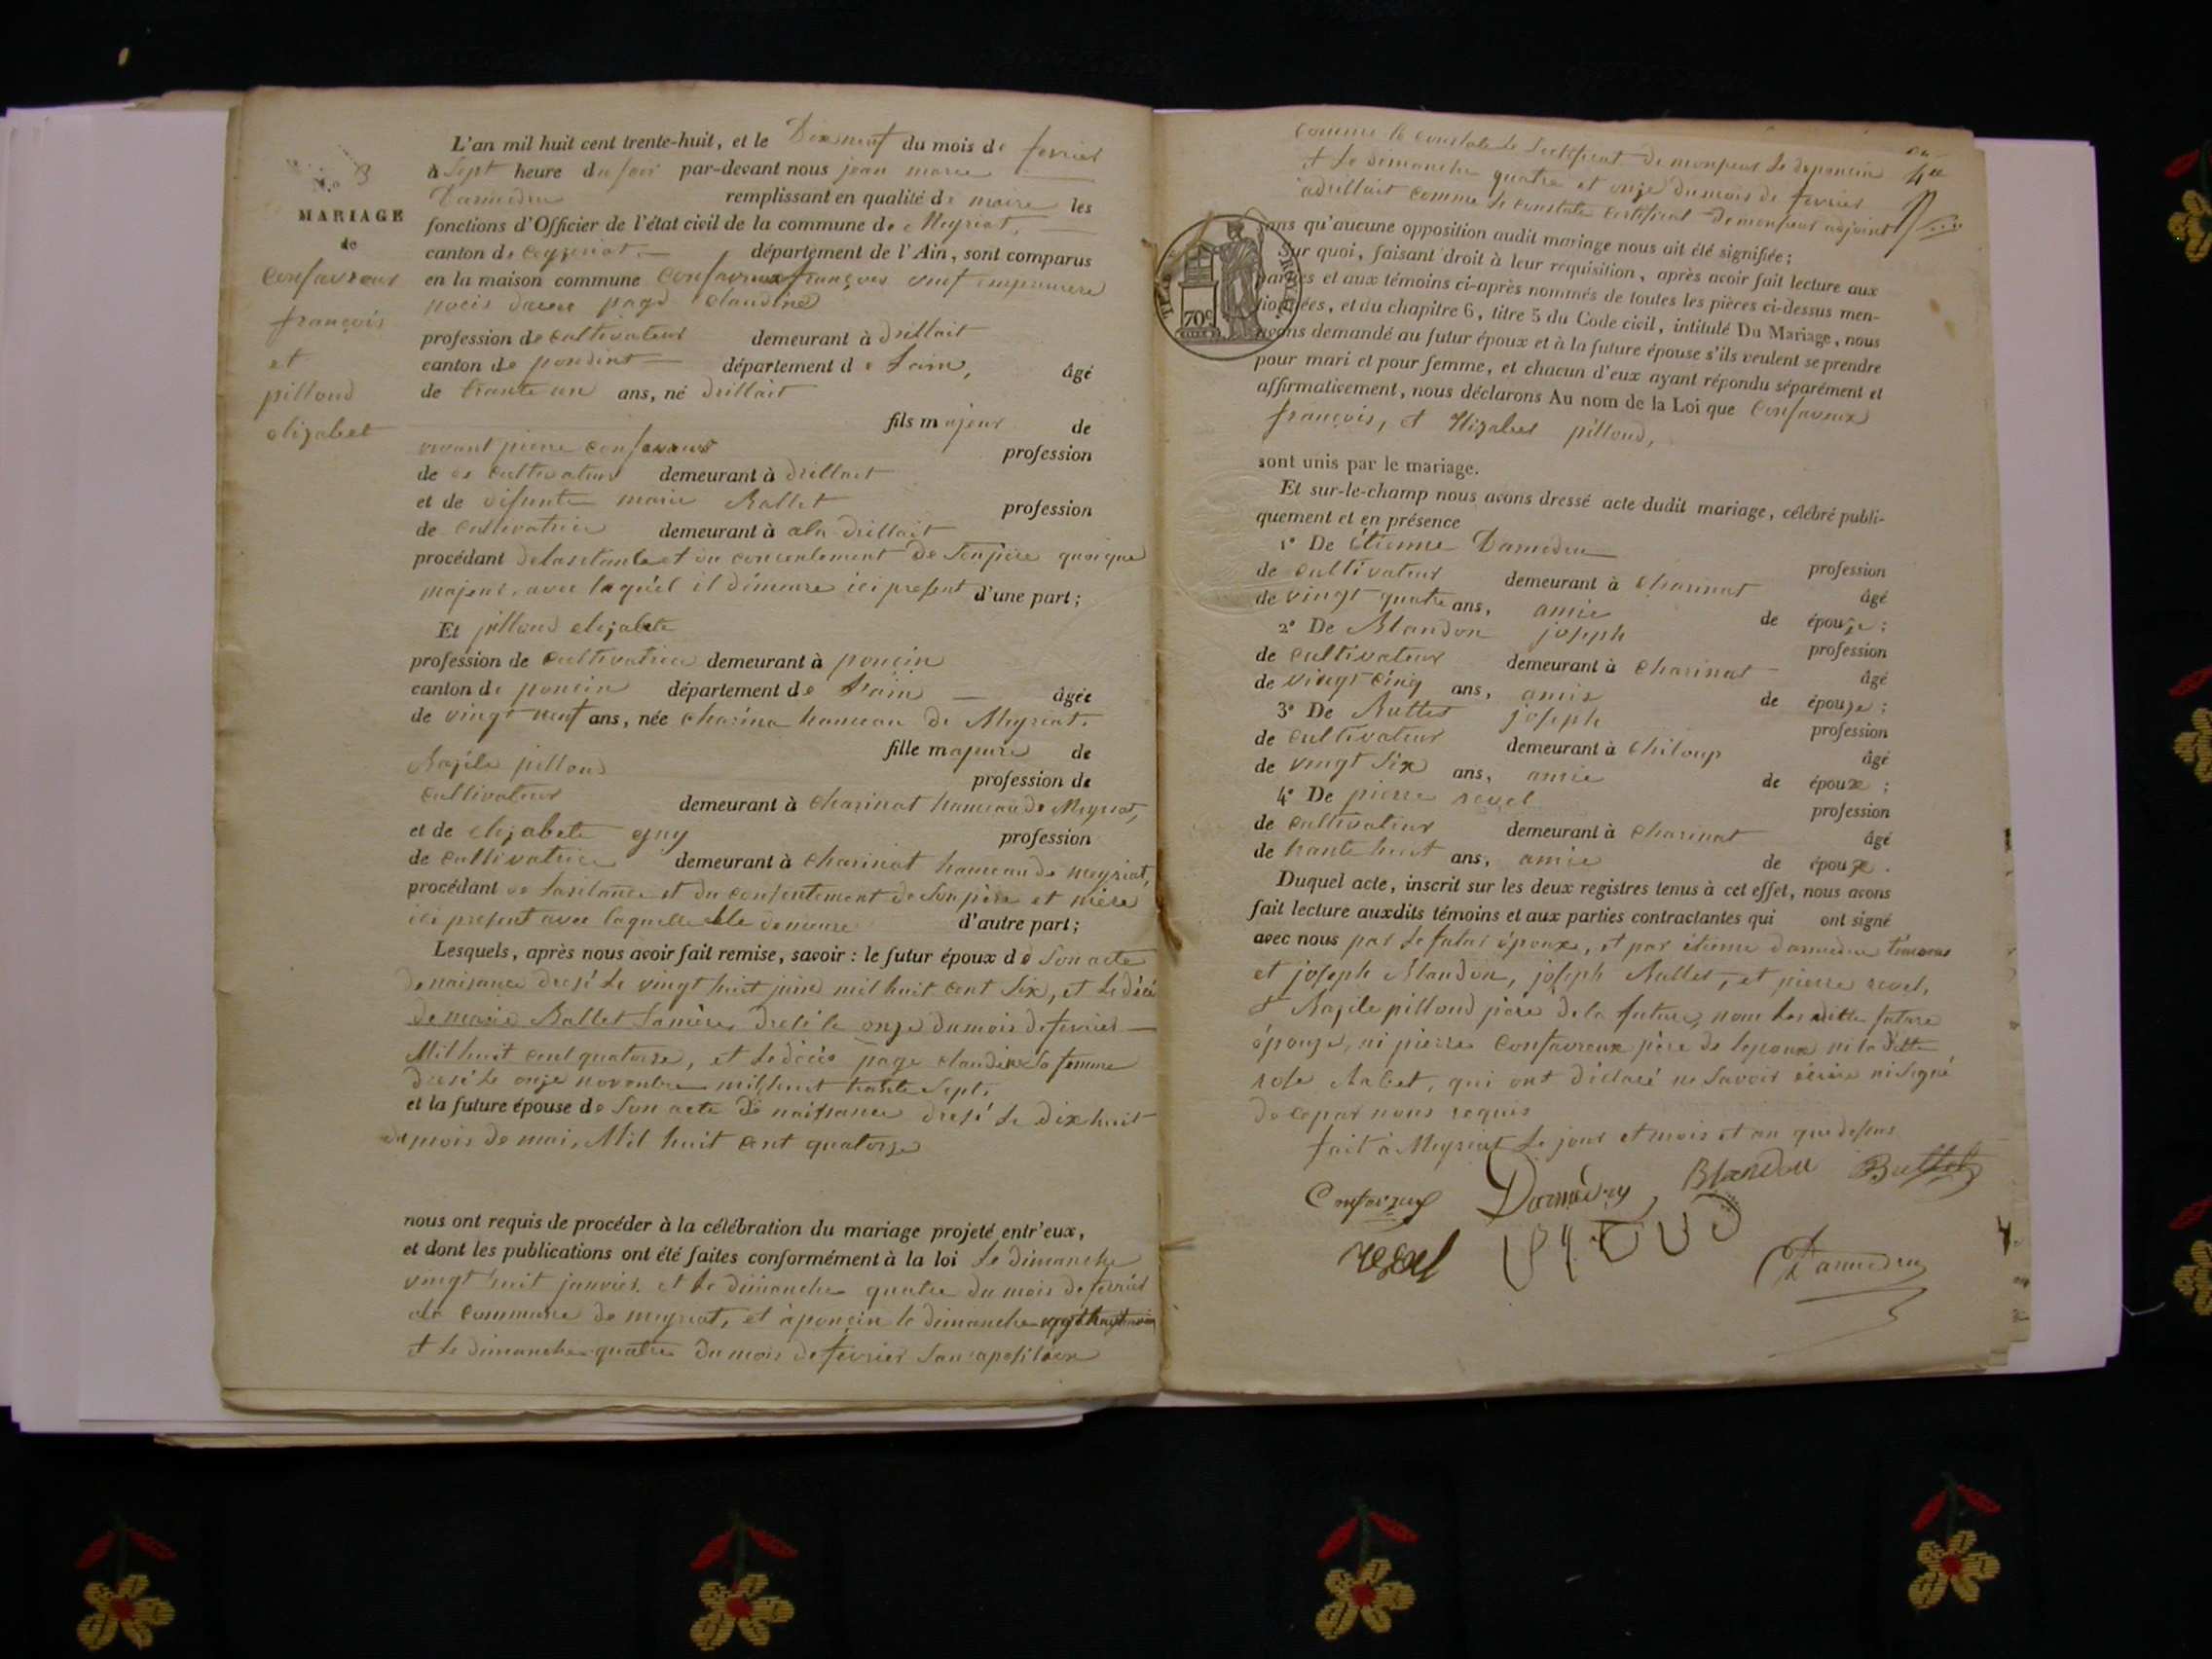 L'an mil huit cent trente-huit, et le Dixneuf du mois de fevrier
à Sept heure du soir par-devant nous jean marie
Damedin remplissant en qualité de maire les
fonctions d'Officier de l'état civil de la commune de Meyriat,
canton de département de l'Ain, sont comparus
en la maison commune Confavreux françois veuf
page Claudine
profession de Cultivateur demeurant à drillait
canton de département de Lain, âgé
de trante un ans, né drillait
fils majeur de
vivant pierre Confavreux profession
de Cultivateur demeurant à drillait
et de défunte marie Ballet profession
de Cultivatrice demeurant à drillait
procédant et du de son père quoique
majeur, avec laquel il démeure ici present d'une part;
Et pilloud elizabete
profession de Cultivatrice demeurant à poncin
canton de poncin département de Lain âgée
de vingt neuf ans, née Charina hameau de Meyriat.
fille majeure de
Bazile pilloud profession de
Cultivateur demeurant à Charinat hameau de Meyriat,
et de elizabete profession
de Cultivatrice demeurant à Charinat hameau de meyriat,
procédant de et du consentement de son père et mère
ici present avec laquelle elle demeure d'autre part;
Lesquels, après nous avoir fait remise, savoir : le futur époux de Son acte
de naisance dresé le vingt huit juin mil huit cent Six, et le décé
de marie Ballet Samère dresé le onze dumois defevrier
Mil huit cent quatorse, et le décès page claudine Sa femme
dresé le onze novembre mil huit trante Sept.
et la future épouse de Son acte de naissance dresé le dix huit
du mois de mai, Mil huit cent quatorze
nous ont requis de procéder à la célébration du mariage projeté entr'eux,
et dont les publications ont été faites conformément à la loi Le dimanche
vingt huit janvier. et le dimanche quatre du mois de fevrier
commune de meyriat, et à poncin le dimanche
et le dimanche quatre du mois de fevrier San
No 3
MARIAGE
de
Confavreux
françois
et
pilloud
elizabet
comme le constate le Sertificat de monsieur le
et le dimanche quatre et onze du mois de fevrier
adrillait comme le constate certificat de monsieur adjoint
sans qu'aucune opposition audit mariage nous ait été signifiée;
Sur quoi, faisant droit à leur réquisition, après avoir fait lecture aux
parties et aux témoins ci-après nommés de toutes les pièces ci-dessus men-
tionnées, et du chapitre 6, titre 5 du Code civil, intitulé Du Mariage, nous
avons demandé au futur époux et à la future épouse s'ils veulent se prendre
pour mari et pour femme, et chacun d'eux ayant répondu séparément et
affirmativement, nous déclarons Au nom de la Loi que Confavreux
françois, et Elizabet pilloud,
sont unis par le mariage.
Et sur-le-champ nous avons dressé acte dudit mariage, célébré publi-
quement et en présence
1° De étienne Damedin profession
de Cultivateur demeurant à Charinat âgé
de vingt quatre ans, amie de épouse;
2° De Blandon joseph profession
de Cultivateur demeurant à Charinat âgé
de vingt Cinq ans, amis de épouse;
3° De Buttet joseph profession
de Cultivateur demeurant à Chiloup âgé
de vingt Six ans, amie de époux;
4° De pierre revel profession
de Cultivateur demeurant à Charinat âgé
de trante huit ans, amie de époux.
Duquel acte, inscrit sur les deux registres tenus à cet effet, nous avons
fait lecture auxdits témoins et aux parties contractantes qui ont signé
avec nous par le futur époux, et par étienne damedin témoins
et joseph Blandon, joseph Buttet, et pierre revel,
et Bazile pilloud père de la future, non ladite future
épouze, ni pierre Confavreux père de lepoux ni la ditte
rose qui ont déclaré ne Savoir écrire ni Signé
de ce par nous requis
fait à Meyriat le jour et mois et an que desus
TIMBRE ROYAL
70c
Confavreux Blandon Buttet
revel